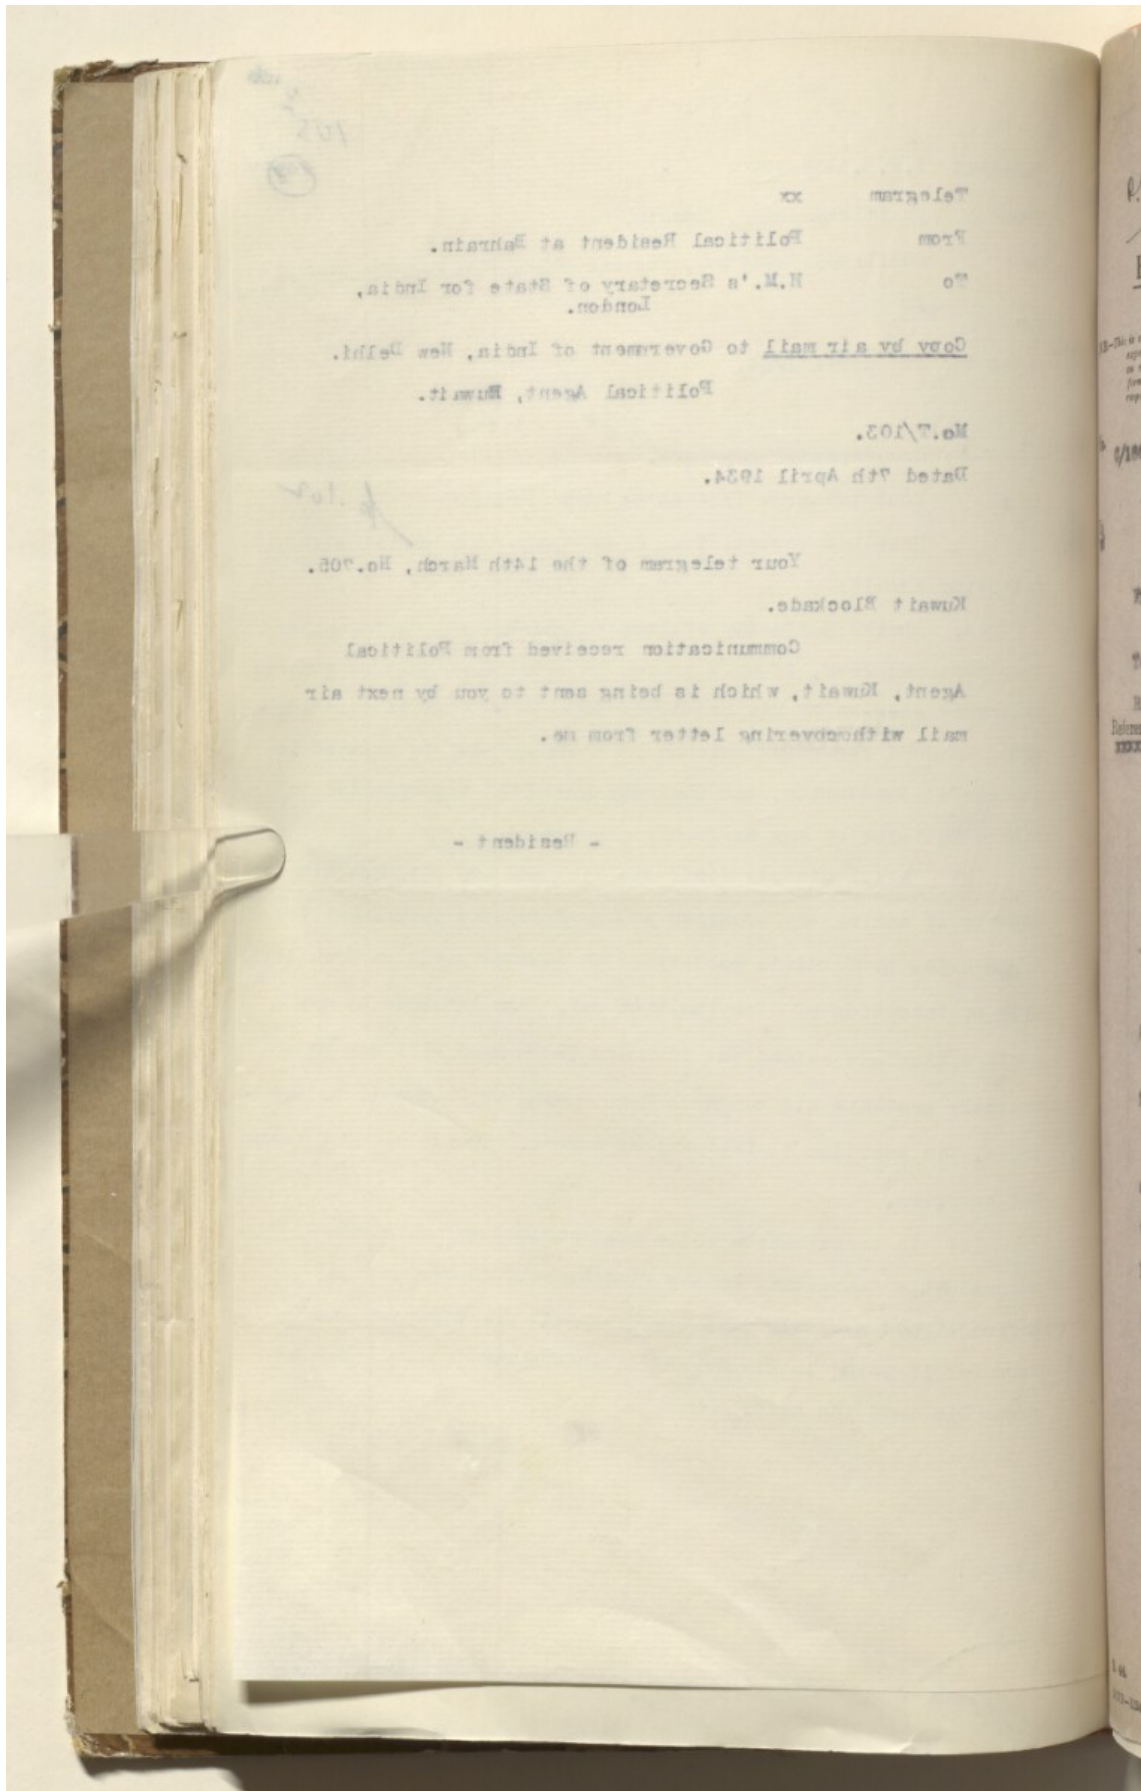 Telegram xx
From Political Resident at Bahrain.
To H.M.'s Secretary of State for India,
London.
Copy by air mail to Government of India, New Delhi.
Political Agent, Kuwait.
No.T/103.
Dated 7th April 1934.
Your telegram of the 14th March, No.705.
Kuwait Blockade.
Communication received from Political
Agent, Kuwait, which is being sent to you by next air
mail withcovering letter from me.
- Resident -